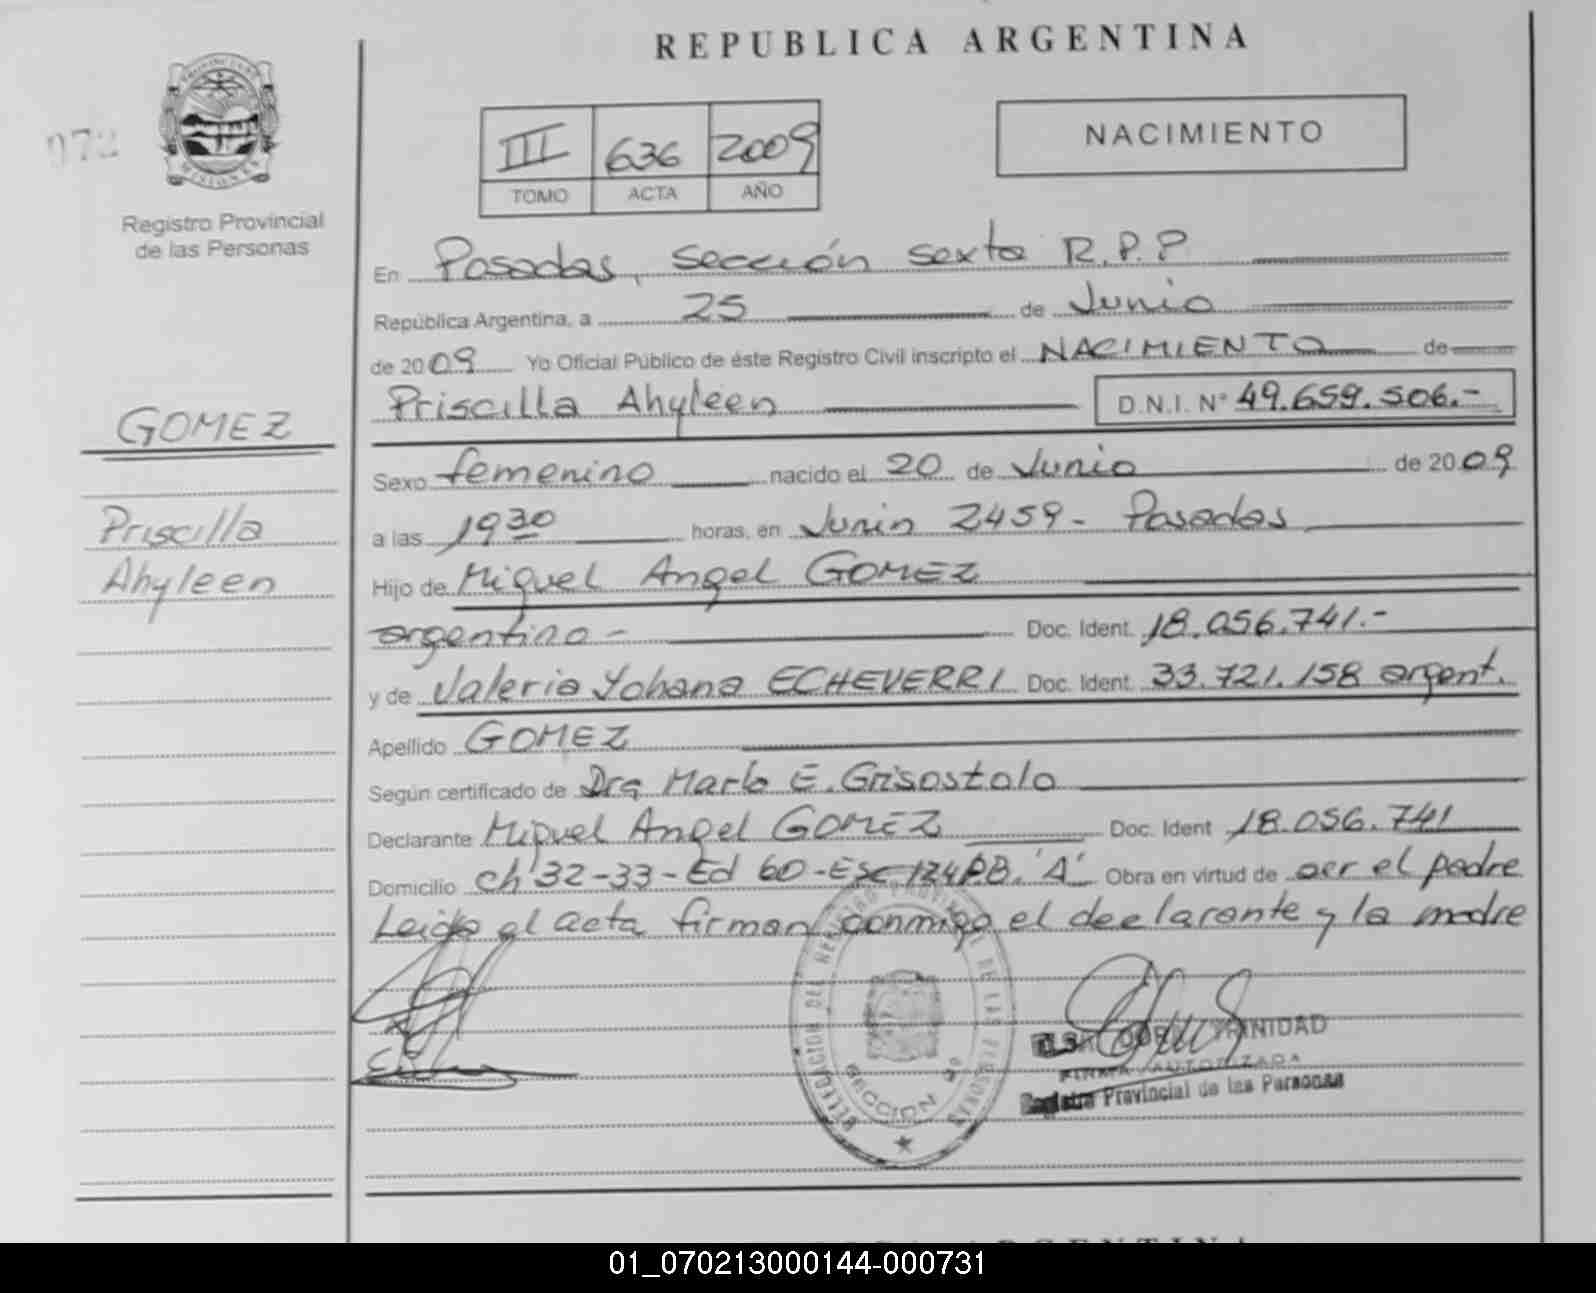 REPUBLICA ARGENTINA
072
PROVINCIA DE
MISIONES
Registro Provincial
de las Personas
III 636 2009
TOMO ACTA AÑO
NACIMIENTO
En Posadas, sección sexta R.P.P
República Argentina, a 25 de Junio
de 2009 Yo Oficial Público de éste Registro Civil inscripto el NACIMIENTO de
Priscilla Ahyleen D.N.I. Nº 49.659.506.-
GOMEZ
Priscilla
Ahyleen
Sexo femenino nacido el 20 de Junio de 2009
a las 19 30 horas, en Junin 2459 - Posadas
Hijo de Miguel Angel GOMEZ
argentino - Doc. Ident. 18.056.741.-
y de Valeria Yohana ECHEVERRI Doc. Ident. 33.721.158 argent.
Apellido GOMEZ
Según certificado de Dra Marta E. Grisostolo
Declarante Miguel Angel GOMEZ Doc. Ident 18.056.741
Domicilio ch 32-33-Ed 60-Esc 124 P.B. "A" Obra en virtud de ser el padre
Leida el acta firman conmigo el declarante y la madre
DELEGACION DEL REGISTRO PROVINCIAL DE LAS PERSONAS
SECCION
TRINIDAD
FIRMA AUTORIZADA
Registro Provincial de las Personas
REPUBLICA ARGENTINA
01_070213000144-000731